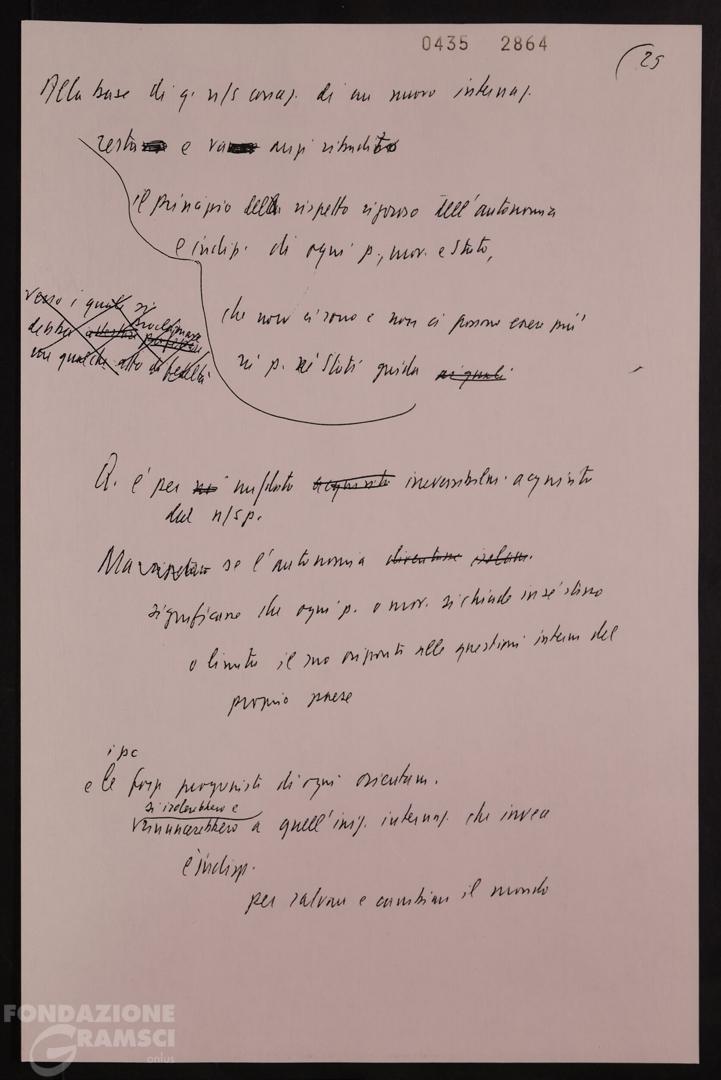 0435 2864
25
Alla base di q. n/s concez. di un nuovo internaz.
resta e va anzi ribadito
il principio del rispetto rigoroso dell'autonomia
e indip. di ogni p., mov. e Stato,
verso i quali si
debba proclamare
una qualche atto di fedeltà
che non ci sono e non ci possono essere più
né p. né Stati guida ai quali
Q. è per un dato acquisito irreversibilm. acquisito
dal n/s p.
Ma se l'autonomia diventasse isolam.
significasse che ogni p. o mov. si chiude in sé stesso
o limita il suo orizzonte alle questioni interne del
proprio paese
i pc
e le forze progressiste di ogni orientam.
si isolerebbero e
rinuncerebbero a quell'iniz. internaz. che invece
è indisp.
per salvare e cambiare il mondo
FONDAZIONE
GRAMSCI
onlus